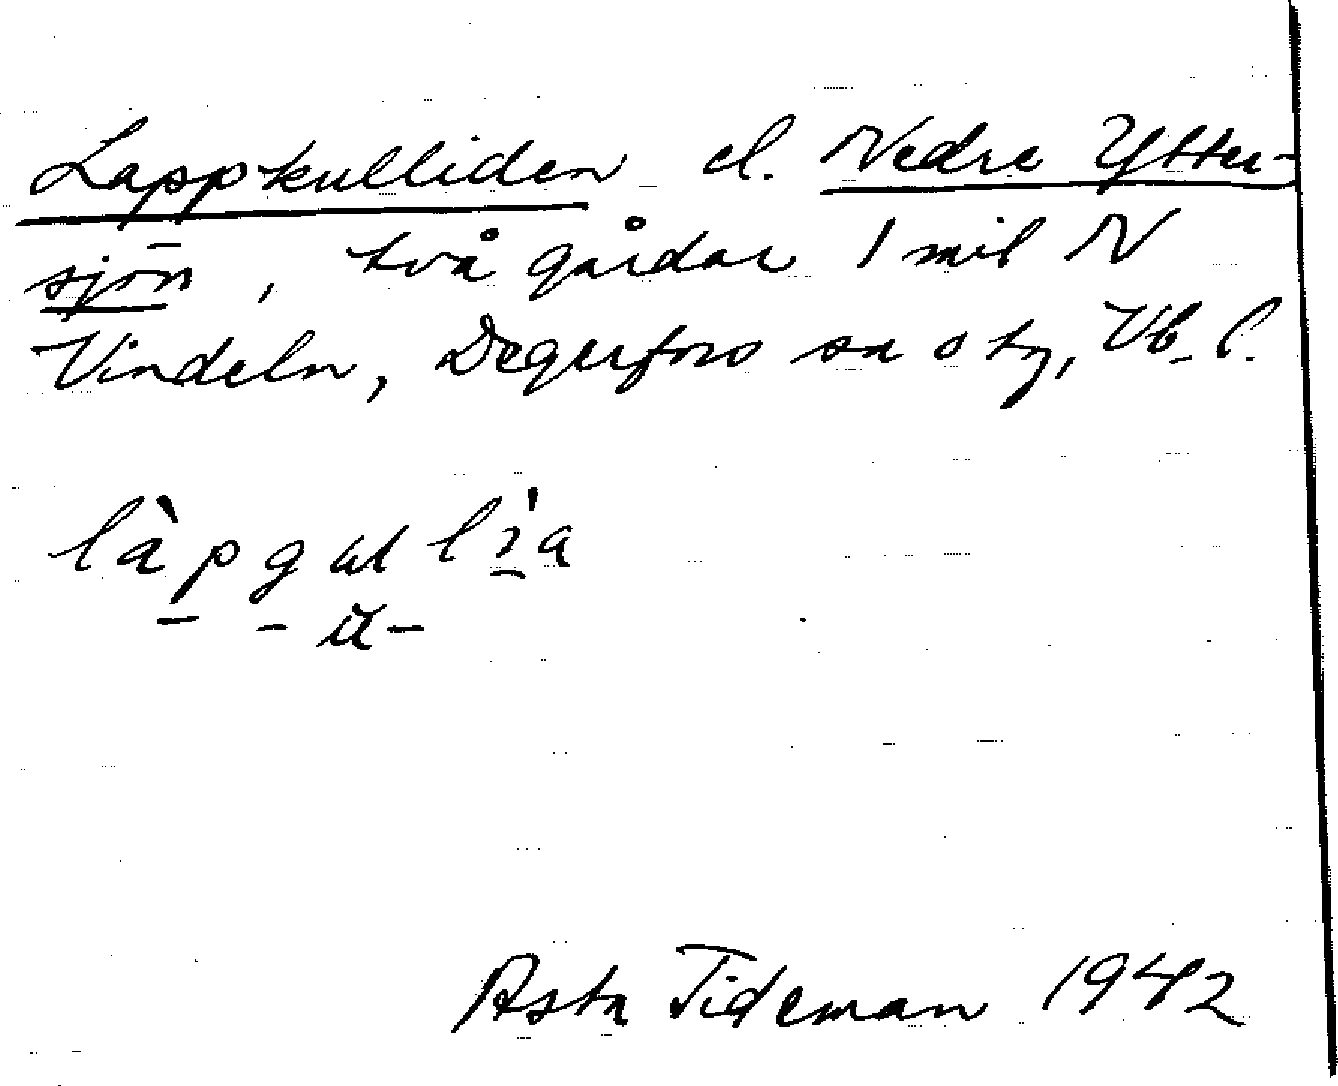 Lappkulliden el. Nedre Ytter-
sjön, två gårdar 1 mil N
Vindeln, Degerfors sn o tg, Vb. l.
làpgulli̱'a
- - ŭ -
Asta Tideman 1942